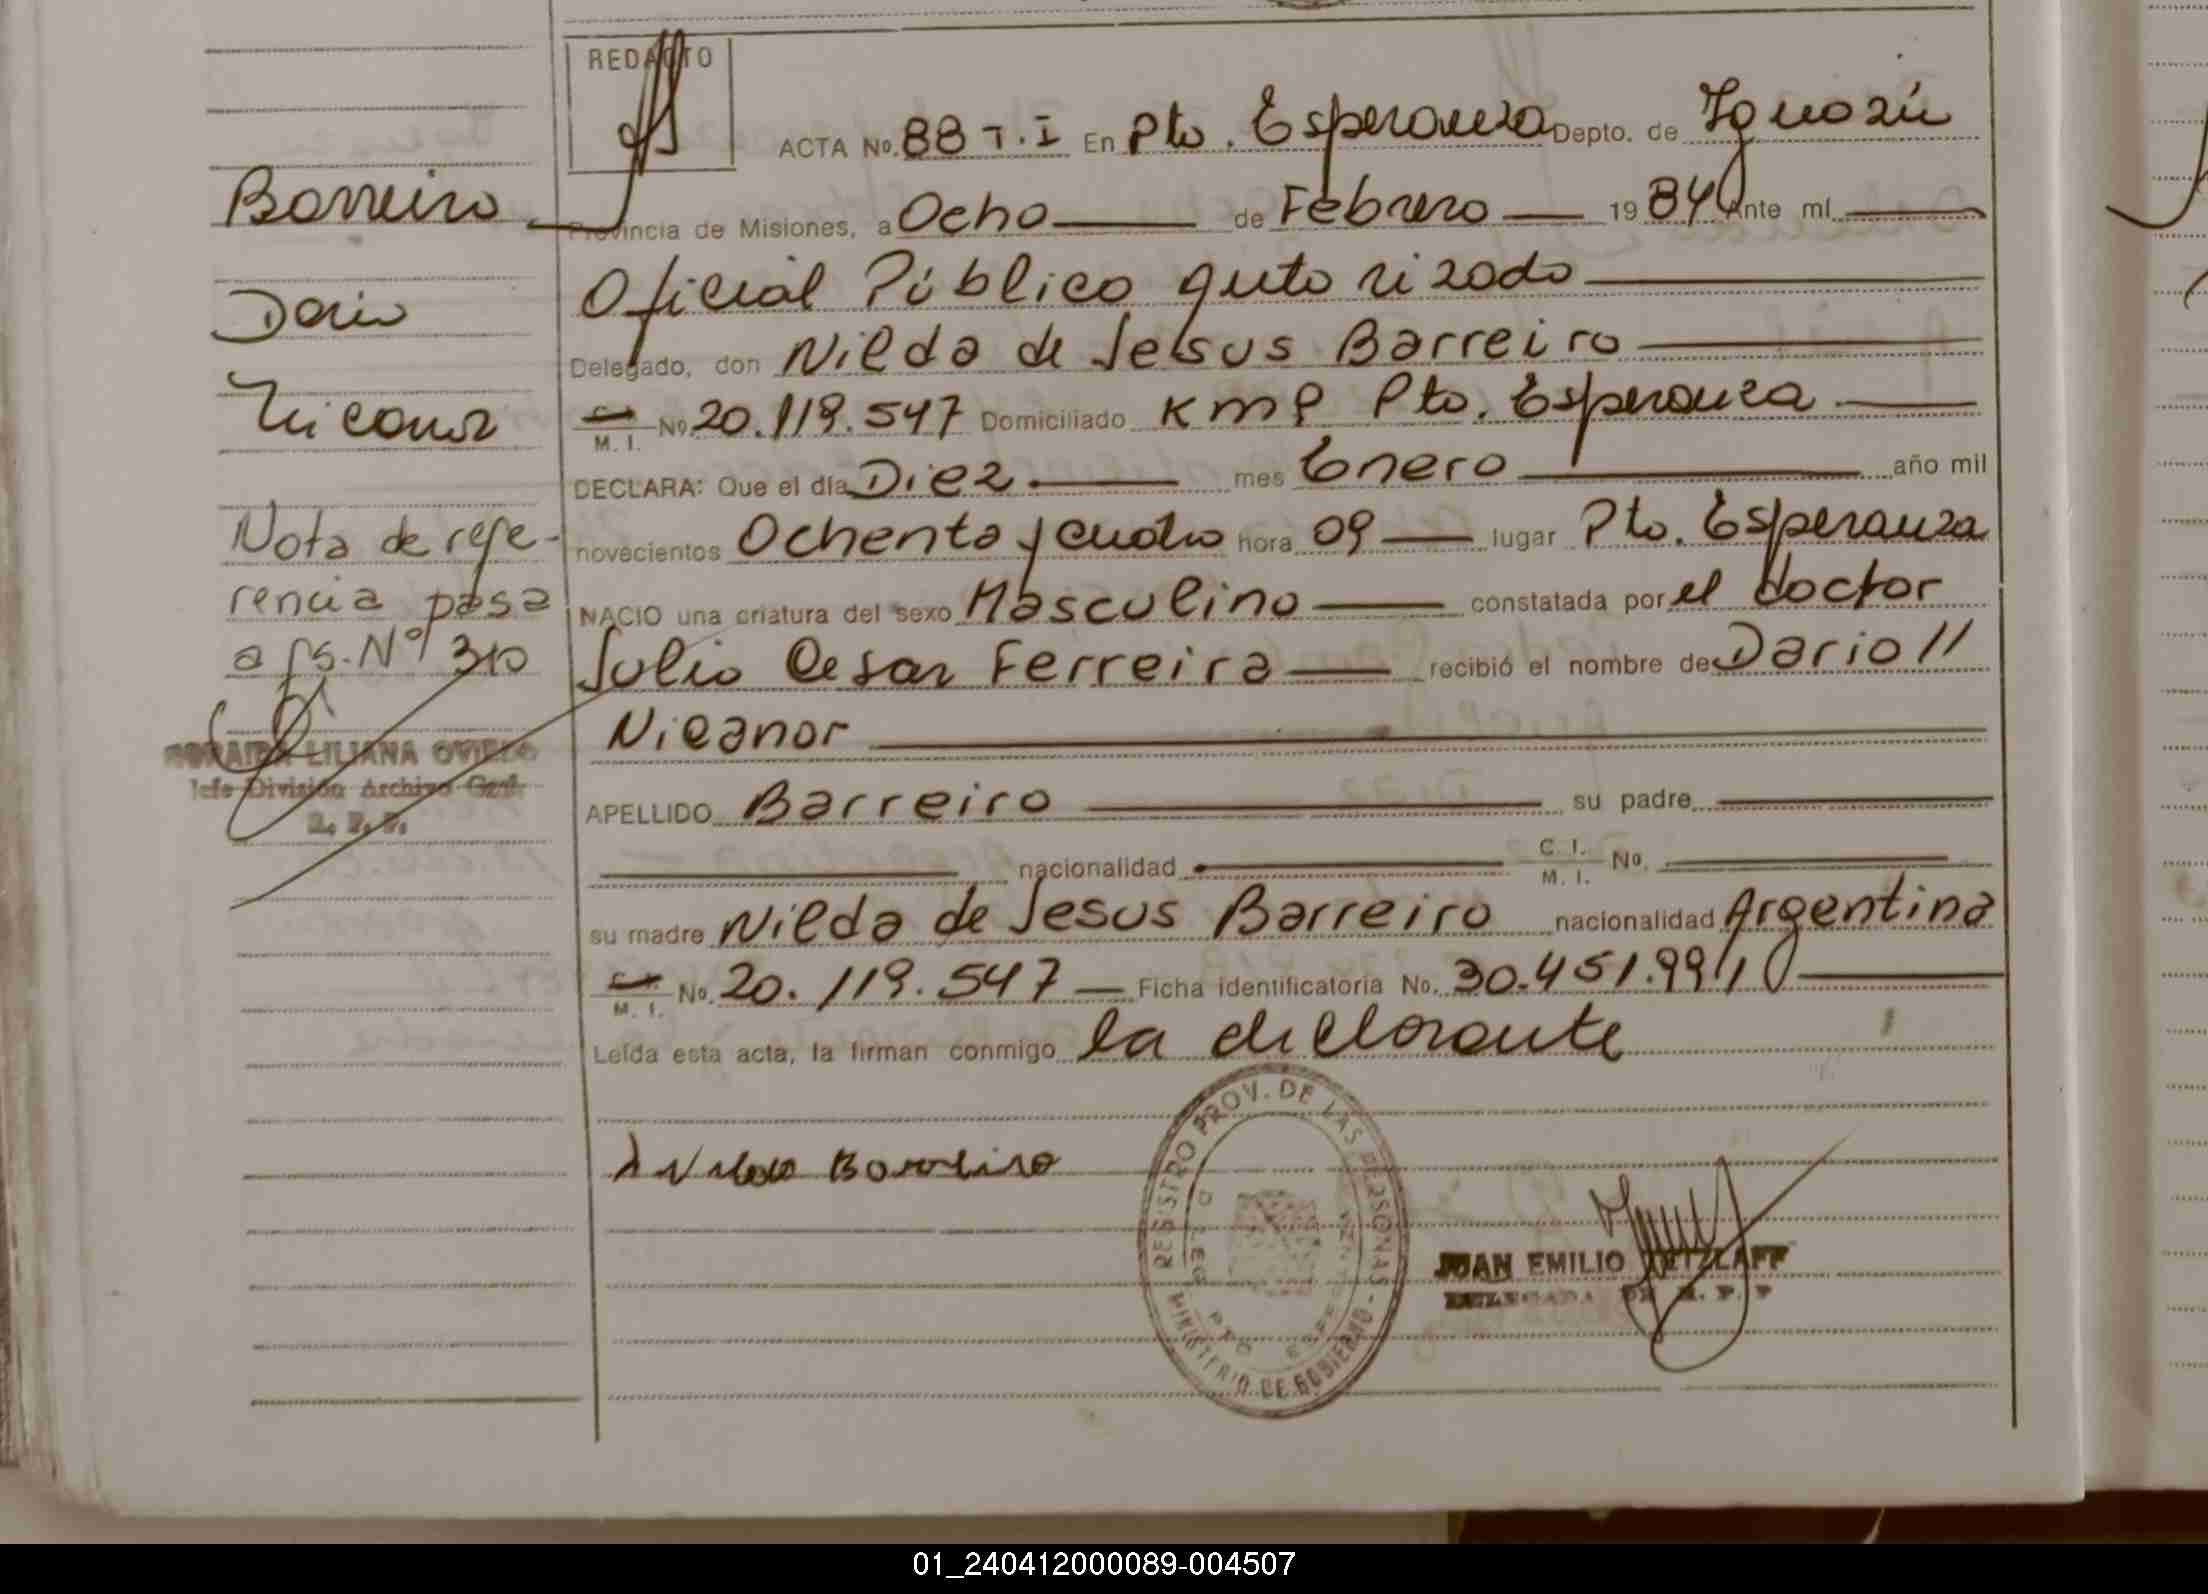 REDACTO
ACTA No. 88 T.I En Pto. Esperanza Depto. de Iguazú
Provincia de Misiones, a Ocho de Febrero 1984 Ante mí
Oficial Público autorizado
Delegado, don Nilda de Jesus Barreiro
M. I. No. 20.119.547 Domiciliado Km 9 Pto. Esperanza
DECLARA: Que el día Diez mes Enero año mil
novecientos Ochenta y cuatro hora 09 lugar Pto. Esperanza
NACIO una criatura del sexo Masculino constatada por el doctor
Julio Cesar Ferreira recibió el nombre de Dario //
Nicanor
APELLIDO Barreiro su padre
nacionalidad C. I. M. I. No.
su madre Nilda de Jesus Barreiro nacionalidad Argentina
M. I. No. 20.119.547 Ficha identificatoria No. 30.451.991
Leída esta acta, la firman conmigo la declarante
Nilda Barreiro
Barreiro
Dario
Nicanor
Nota de refe-
rencia pasa
a fs. Nº 310
LILIANA OVIEDO
Jefe División Archivo Gral.
R. P. P.
REGISTRO PROV. DE LAS PERSONAS - MINISTERIO DE GOBIERNO
JUAN EMILIO
01_240412000089-004507